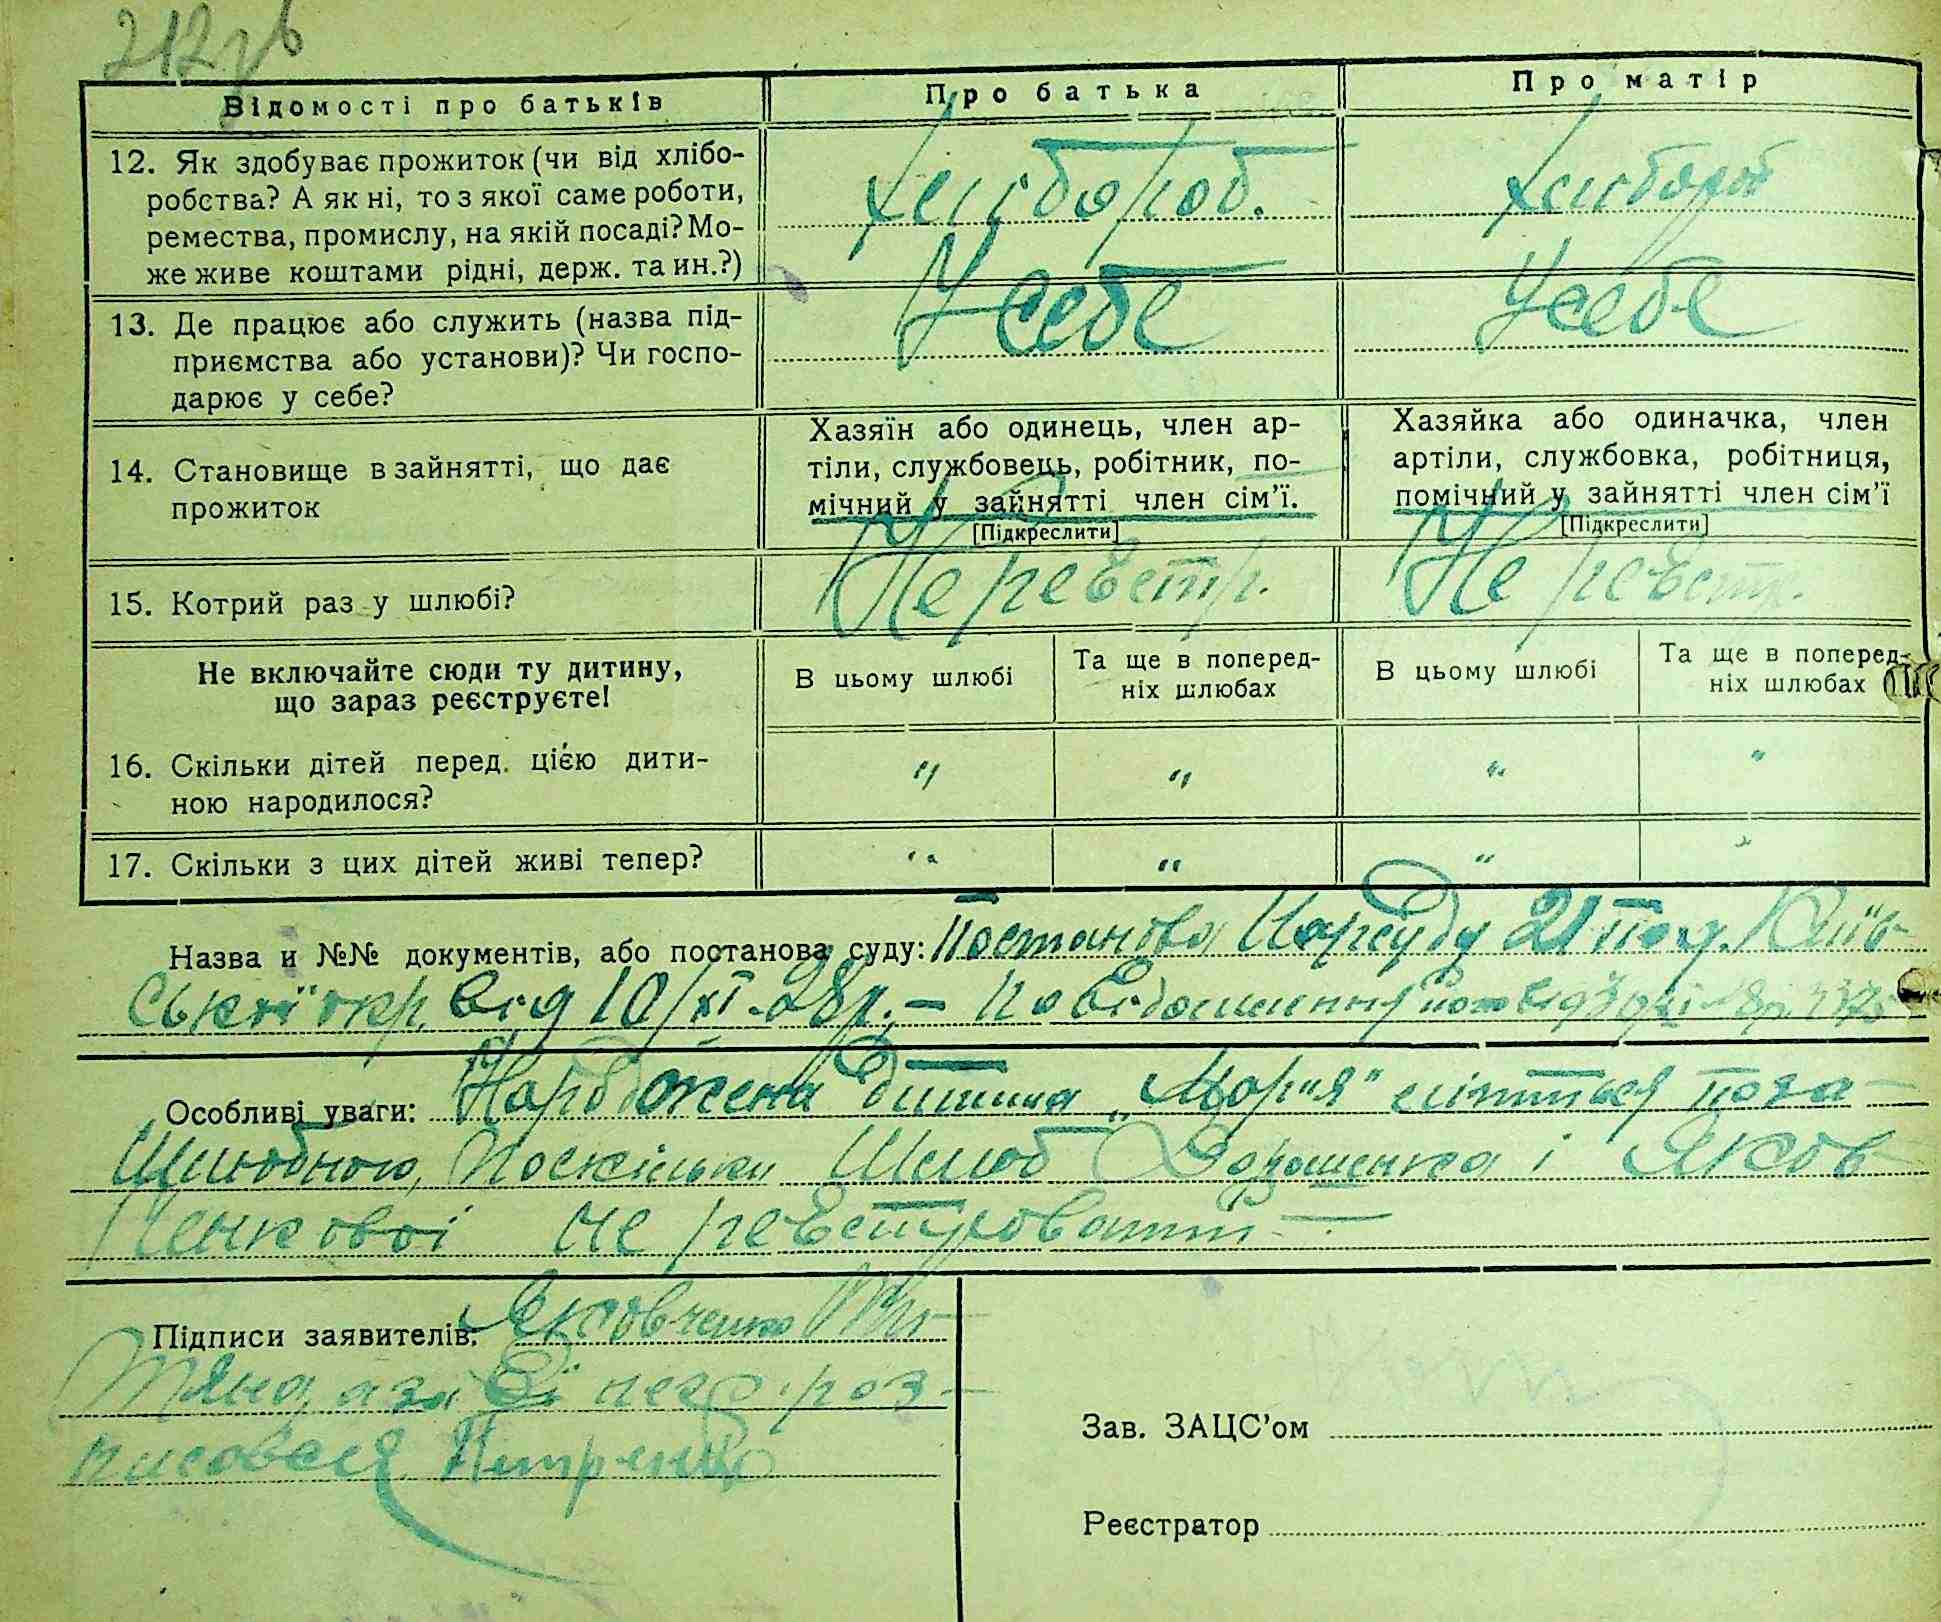 212зв
Відомості про батьків
Про батька
Про матір
12. Як здобуває прожиток (чи від хлібо-
робства? А як ні, то з якої саме роботи,
ремества, промислу, на якій посаді? Мо-
же живе коштами рідні, держ. та ин.?)
Хлібороб.
Хлібороб
13. Де працює або служить (назва під-
приємства або установи)? Чи госпо-
дарює у себе?
У себе
У себе
14. Становище в зайнятті, що дає
прожиток
Хазяїн або одинець, член ар-
тіли, службовець, робітник, по-
мічний у зайнятті член сім’ї.
[Підкреслити]
Хазяйка або одиначка, член
артіли, службовка, робітниця,
помічний у зайнятті член сім’ї
[Підкреслити]
15. Котрий раз у шлюбі?
Не реєстр.
Не реєстр.
Не включайте сюди ту дитину,
що зараз реєструєте!
В цьому шлюбі
Та ще в поперед-
ніх шлюбах
В цьому шлюбі
Та ще в поперед-
ніх шлюбах
16. Скільки дітей перед цією дити-
ною народилося?
" " " "
17. Скільки з цих дітей живі тепер?
" " " "
Назва и №№ документів, або постанова суду: Постанова Нарсуду 21 Київ-
ської окр. від 10/XI-28р. – Повідомлення
Особливі уваги: Народжена дитина „Марія"  поза
Шлюбною, Поскільки Шлюб Дорошенка і Яков
ченкової не реєстрований
Підписи заявителів: Яковченко
тяна, а за її непр. роз-
писовася Петренко
Зав. ЗАЦС’ом
Реєстратор